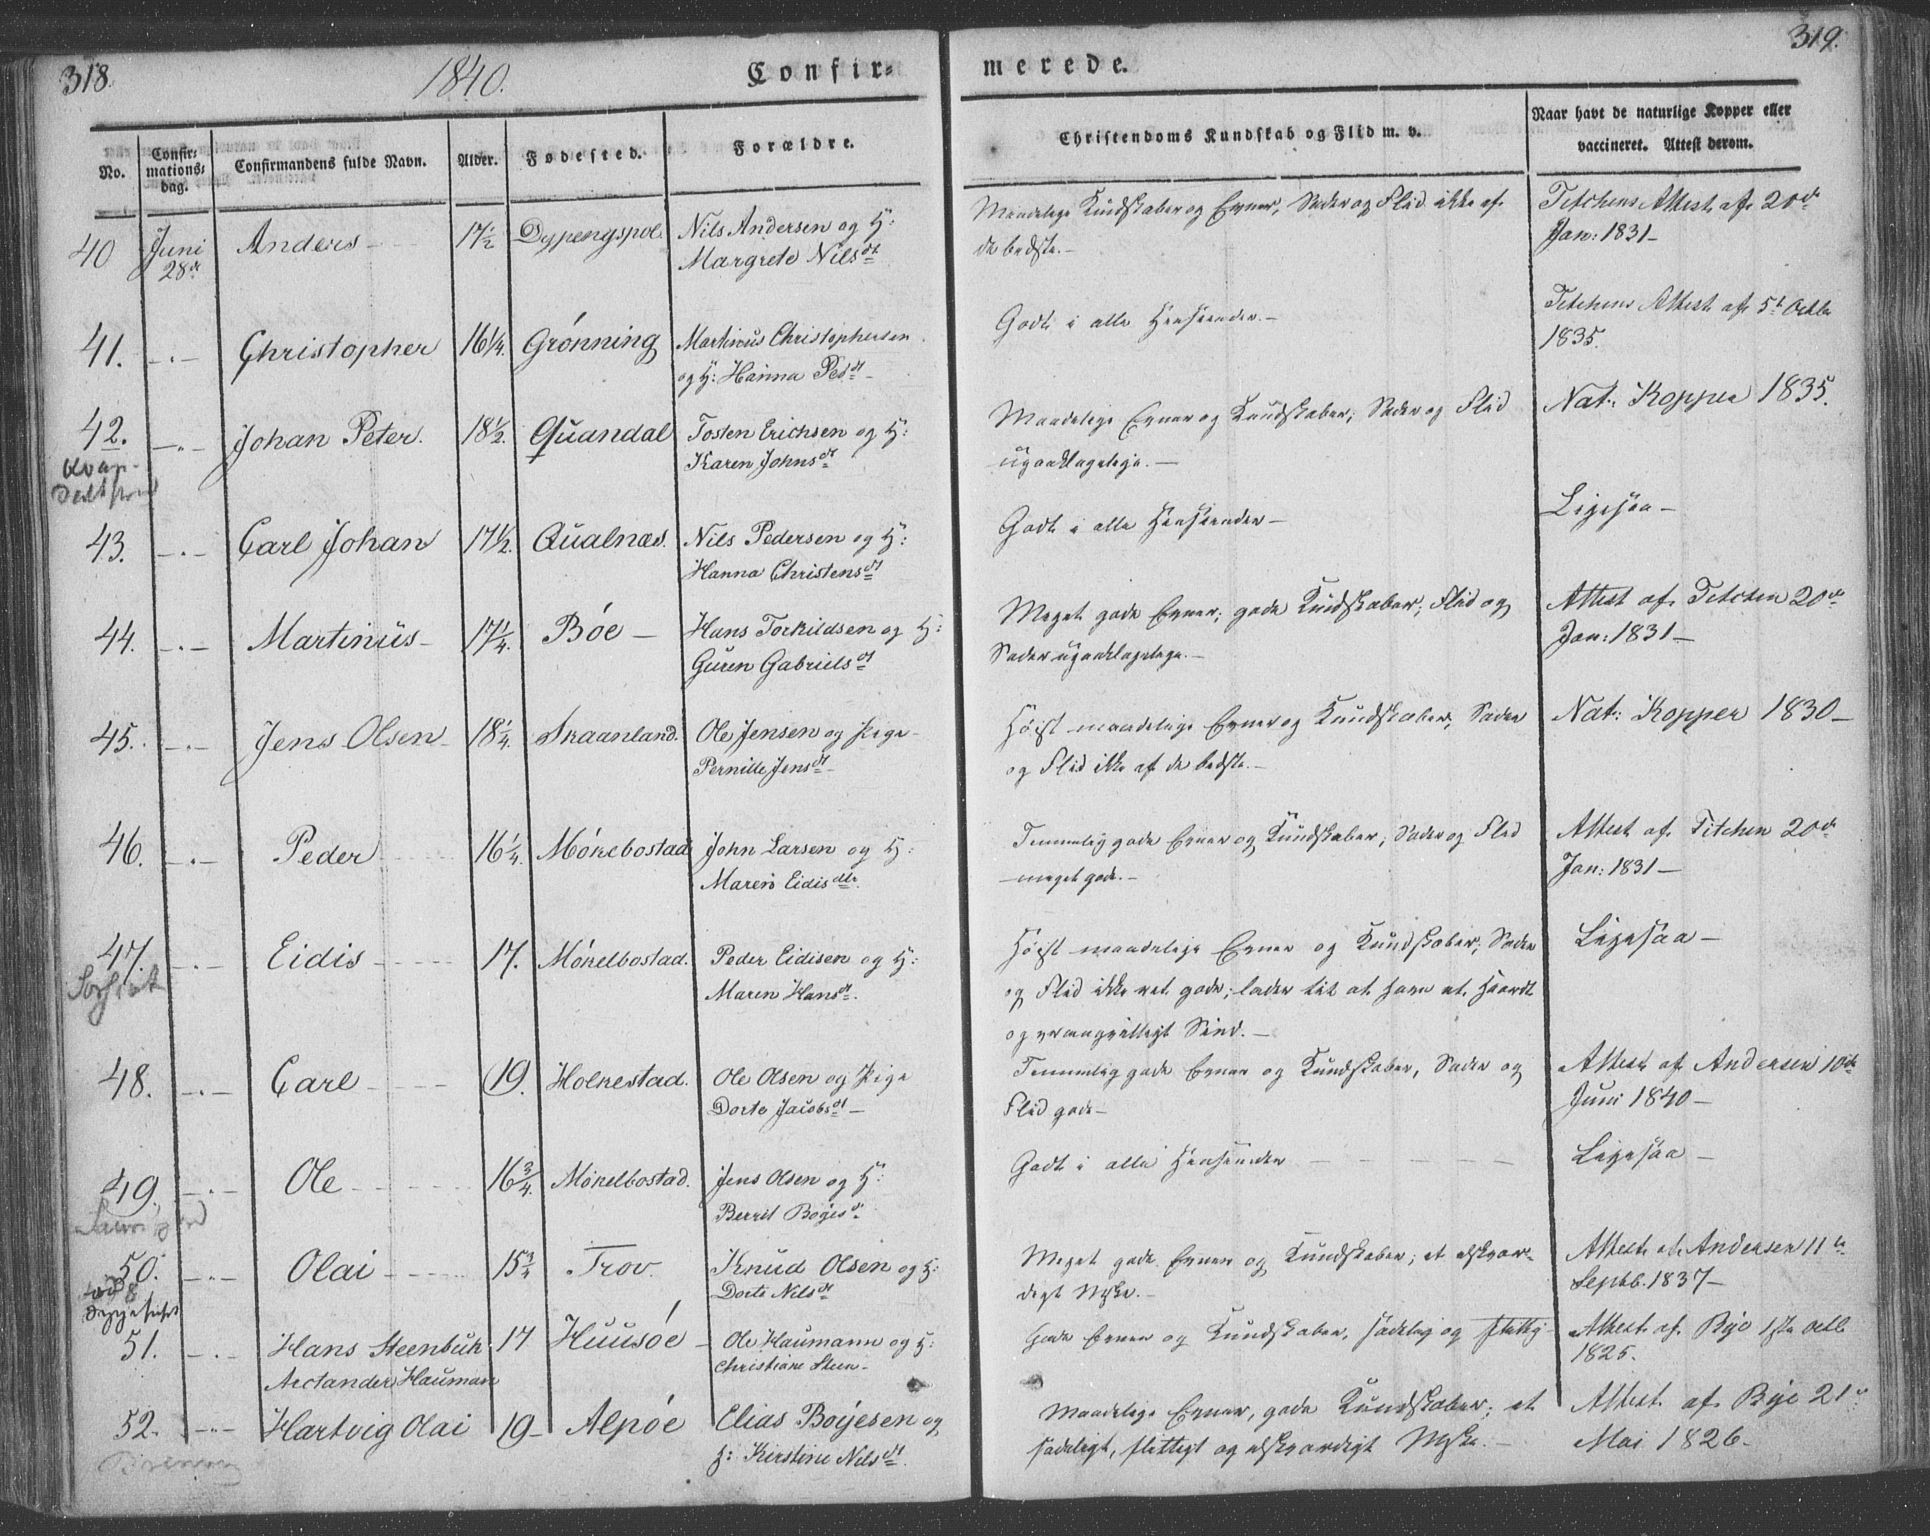 318.
1840.
Confir-
merede.
319.
No.
Confir-
mations-
dag.
Confirmandens fulde Navn.
Alder.
Fødested.
Forældre.
Christendoms Kundskab og Flid m. v.
Naar havt de naturlige Kopper eller
vaccineret. Attest derom.
40 Juni Anders 17 1/2 Dypengspol. Nils Andersen og H: Maadelige Kundskaber og Evner, Sæder og Flid ikke af Titchens Attest af 20de
28de Margrete Nilsdt de bedste. Jan: 1831
41. Christopher 16 1/4. Grönning Martinus Christophersen Godt i alle Henseender. Titchens Attest af 5t Octbr
og H: Hanna Pedsdt 1835.
42. Johan Peter. 18 1/2. Quandal Tosten Erichsen og H: Maadelige Evner og Kundskaber, Sæder og Flid Nat: Kopper 1835.
Karen Johnsdt upaaklagelige.
43. Carl Johan 17 1/2. Qualnæs. Nils Pedersen og H: Godt i alle Henseender Ligesaa
Hanna Christensdt
44. Martinus 17 1/4. Böe Hans Torkildsen og H: Meget gode Evner, gode Kundskaber, Flid og Attest af Titchen 20de
Guren Gabrielsdt Sæder upaaklagelige. Jan: 1831
45. Jens Olsen 18 1/4. Skaanland. Ole Jensen og Pige Höist maadelige Evner og Kundskaber, Sæder Nat: Kopper 1830
Pernille Jensdt og Flid ikke af de bedste.
46. Peder 16 1/4. Mökelbostad John Larsen og H: Temmelig gode Evner og Kundskaber, Sæder og Flid Attest af Titchen 20de
Maren Eidisdtr. meget gode. Jan: 1831
47. Eidis 17. Mökelbostad. Peder Eidisen og H: Höist maadelige Evner og Kundskaber, Sæder Ligesaa
Maren Hansdt. og Flid ikke ret gode; lader til at have et haardt
og vrangvilligt Sind.
48. Carl 19. Holkestad. Ole Olsen og Pige Temmelig gode Evner og Kundskaber, Sæder og Attest af Andersen 10de
Dorte Jacobsdt Flid gode Juni 1840
49. Ole 16 3/4 Mökelbostad. Jens Olsen og H: Godt i alle Henseender Ligesaa
Berrit Bojesdt
50. Olai 15 3/4 Trov. Knud Olsen og H: Meget gode Evner og Kundskaber; et elskvær- Attest af Andersen 11te
Dorte Nilsdt digt Mske. Septb. 1837
51. Hans Steenbuk 17 Huusöe Ole Haumann og H: Gode Evner og Kundskaber, sædelig og flittig Attest af Bye 1ste Octb
Arctander Hauman Christiane Steen 1825.
52. Hartvig Olai 19 Alpöe Elias Boijesen og Maadelige Evner, gode Kundskaber; et Attest af Bye 21de
H: Kirstine Nilsdt. sædeligt, flittigt og elskværdigt Mske. Mai 1826